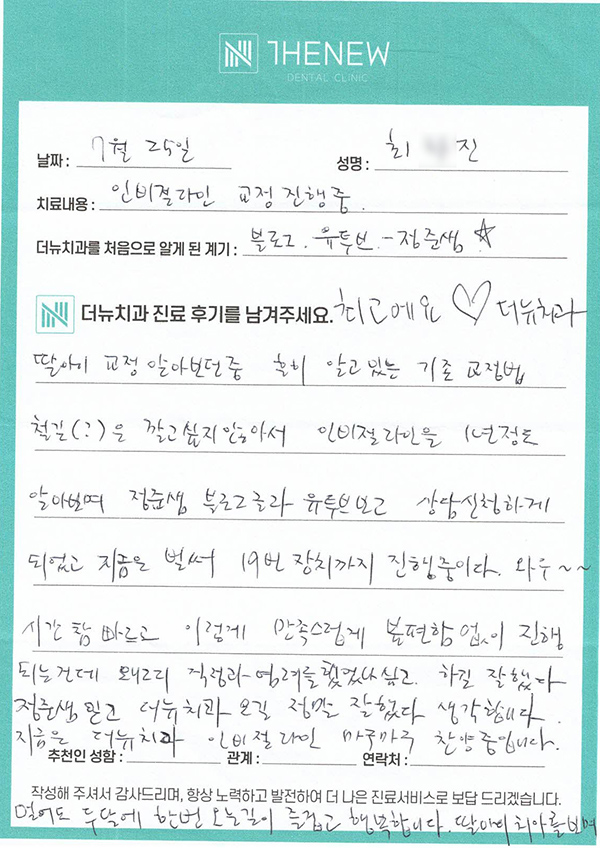 THENEW
DENTAL CLINIC
날짜 : 7월 25일 성명 : 최 진
치료내용 : 인비절라인 교정 진행중.
더뉴치과를 처음으로 알게 된 계기 : 블로그. 유투브 - 정준쌤 ☆
더뉴치과 진료 후기를 남겨주세요. 최고에요 ♡ 더뉴치과
딸아이 교정 알아보던중 흔히 알고있는 기존 교정법
철길(?)은 깔고싶지않아서 인비절라인을 1년정도
알아보며 정준쌤 블로그글과 유투브보고 상담신청하게
되었고 지금은 벌써 19번 장치까지 진행중이다. 와우~~
시간 참 빠르고 이렇게 만족스럽게 불편함없이 진행
되는건데 왜그리 걱정과 염려를 했었나 싶고. 하길 잘했다
정준쌤 믿고 더뉴치과 오길 정말 잘했다 생각합니다.
지금은 더뉴치과 인비절라인 마구마구 찬양중입니다.
추천인 성함 : 관계 : 연락처 :
작성해 주셔서 감사드리며, 항상 노력하고 발전하여 더 나은 진료서비스로 보답 드리겠습니다.
멀어도 두달에 한번 오늘길이 즐겁고 행복합니다. 딸아이 치아를보며